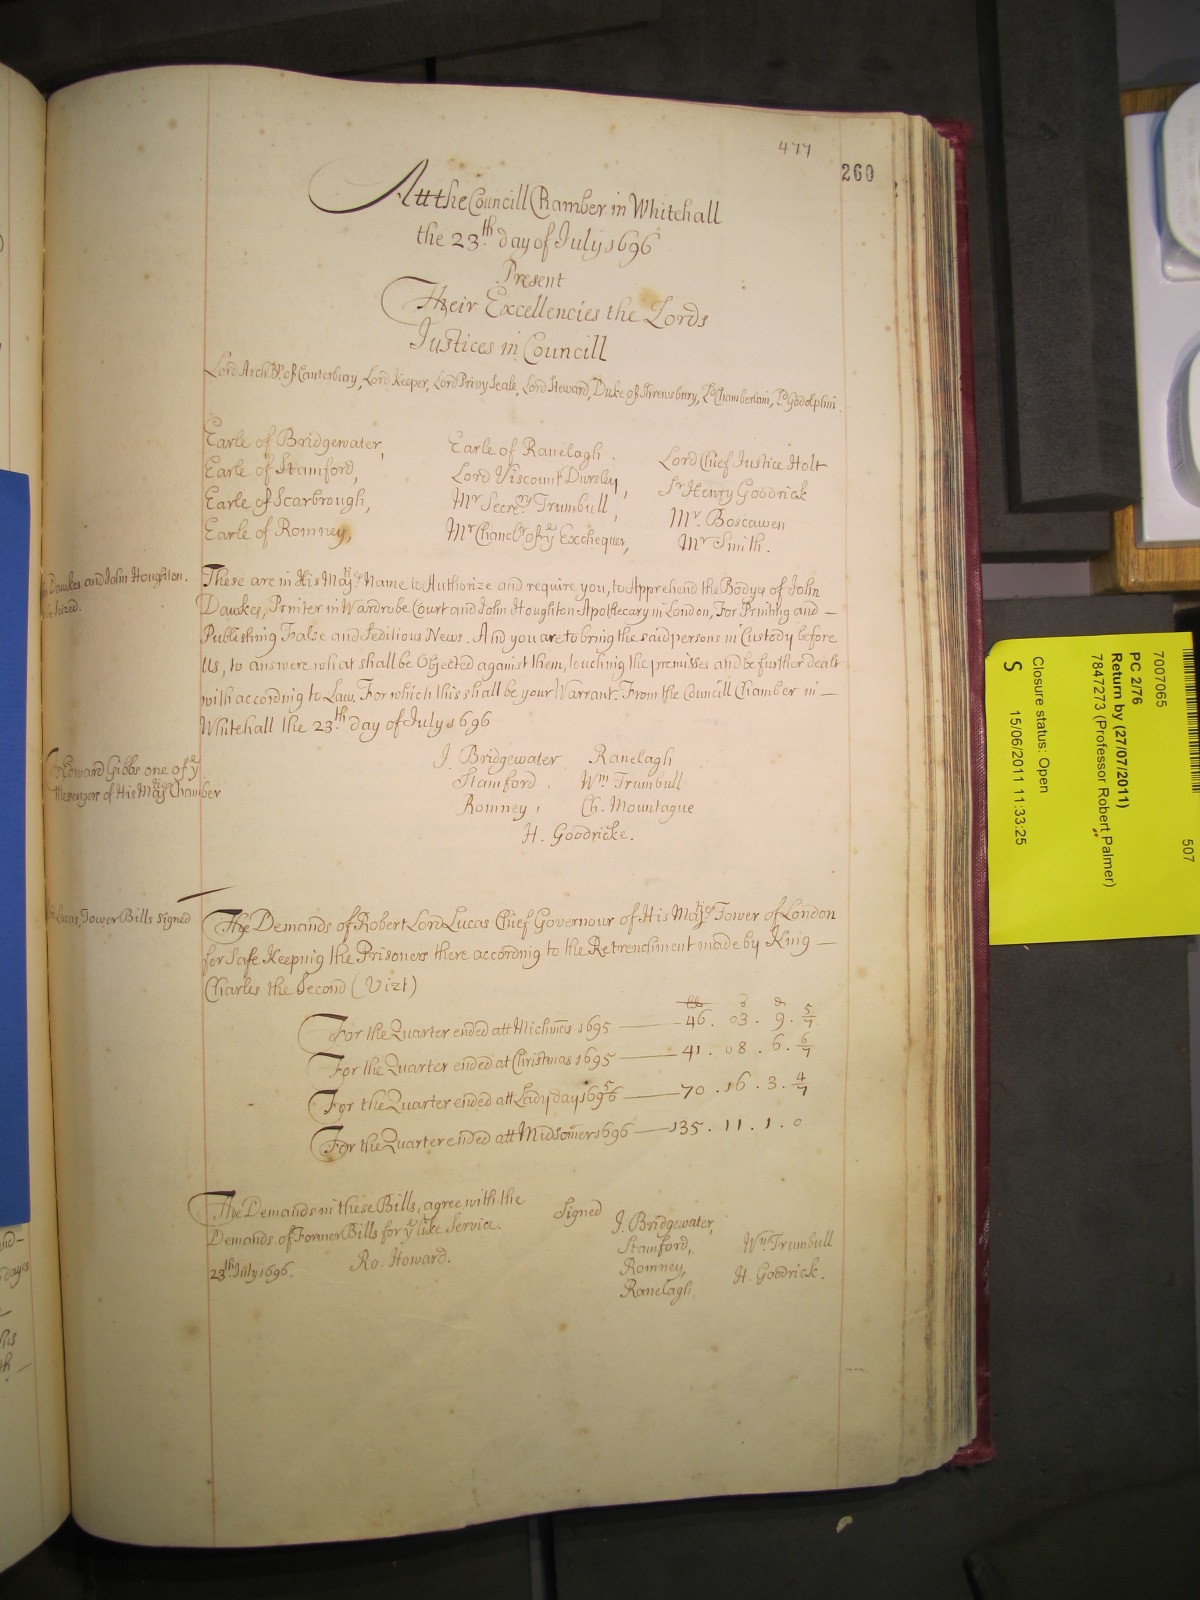 477
260
Att the Councill Chamber in Whitehall
the 23th day of July 1696
Present
Their Excellencies the Lords
Justices in Councill
Lord Arch.Bp. of Canterbury, Lord Keeper, Lord Privy Seale, Lord Steward, Duke of Shrewsbury, Ld Chamberlain, Ld Godolphin.
Earle of Bridgewater,
Earle of Stamford,
Earle of Scarbrough,
Earle of Romney,
Earle of Ranelagh.
Lord Viscount Dursley,
Mr Secrery Trumbull,
Mr Chancr of ye Exchequer,
Lord Chief Justice Holt
Sr Henry Goodrick
Mr. Boscawen
Mr Smith.
Dawkes and John Houghton.
seized.
These are in His Majties Name to Authorize and require you, to Apprehend the Bodys of John
Dawkes, Printer in Wardrobe Court and John Houghton Apothecary in London, For Printing and —
Publishing False and Seditious News. And you are to bring the said persons in Custody before
Us, to answere what shall be Objected against them, touching the premisses and be further dealt
with according to Law. For which this shall be your Warrant. From the Councill Chamber in —
Whitehall the 23th day of July 1696
To Edward Gibbs one of ye
Messengers of His Majties Chamber
J. Bridgewater
Stamford.
Romney,
Ranelagh
Wm Trumbull
Ch. Mountague
H. Goodricke.
Lucas, Tower Bills signed
The Demands of Robert Lord Lucas Chief Governour of His Majties Tower of London
for Safe Keeping the Prisoners there according to the Retrenchment made by King —
Charles the Second (Vizt)
For the Quarter ended att Michmas 1695 — 46. 03. 9. 5/7
For the Quarter ended at Christmas 1695 — 41. 08. 6. 6/7
For the Quarter ended att Lady day 1695/6 — 70. 16. 3. 4/7
For the Quarter ended att Midsomer 1696 — 135. 11. 1. 0
The Demands in these Bills, agree with the
Demands of Former Bills for ye like Service.
23th July 1696. Ro. Howard.
Signed
J. Bridgewater,
Stamford,
Romney,
Ranelagh,
Wm Trumbull
H. Goodrick.
7007065
507
PC 2/76
Return by (27/07/2011)
7847273 (Professor Robert Palmer)
Closure status: Open
S 15/06/2011 11:33:25